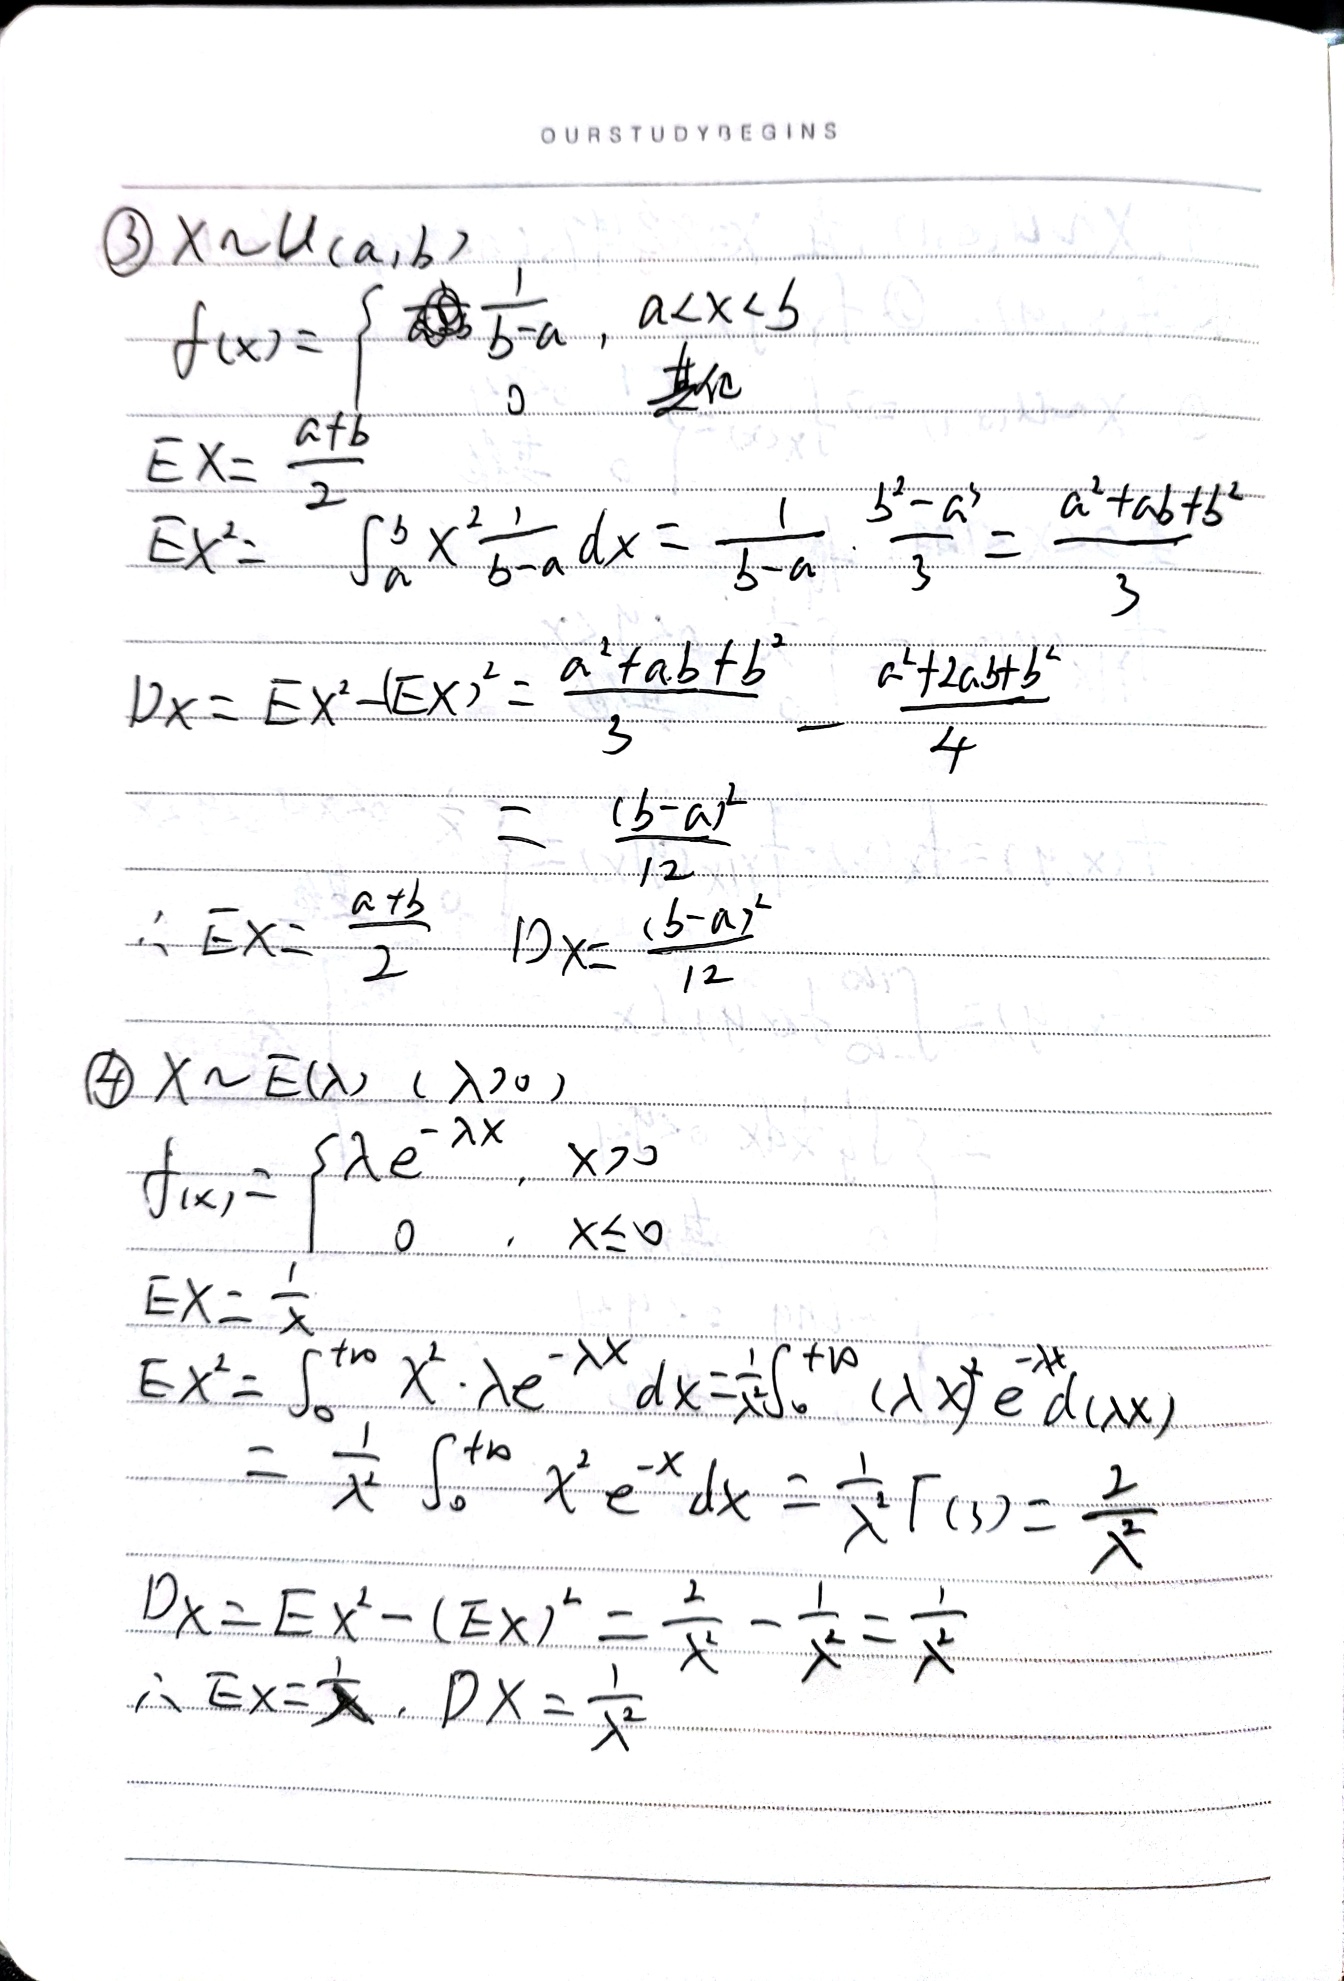 OURSTUDYBEGINS
③ X~U(a,b)
f(x)={ 1/(b-a), a<x<b
0 其他
EX= (a+b)/2
EX²= ∫ₐᵇ x² 1/(b-a) dx = 1/(b-a) · (b³-a³)/3 = (a²+ab+b²)/3
DX= EX²-(EX)² = (a²+ab+b²)/3 - (a²+2ab+b²)/4
= (b-a)²/12
∴ EX= (a+b)/2 DX= (b-a)²/12
④ X~E(λ) (λ>0)
f(x)={ λe^(-λx), x>0
0, x≤0
EX= 1/λ
EX²= ∫₀^(+∞) x²·λe^(-λx) dx = 1/λ² ∫₀^(+∞) (λx)² e^(-λx) d(λx)
= 1/λ² ∫₀^(+∞) x² e^(-x) dx = 1/λ² Γ(3) = 2/λ²
DX=EX²-(EX)² = 2/λ² - 1/λ² = 1/λ²
∴ EX= 1/λ, DX= 1/λ²